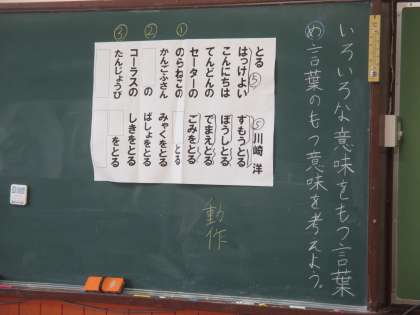 いろいろな意味をもつ言葉
め 言葉のもつ意味を考えよう。
とる 川崎 洋
⑤ ⑤
はっけよい すもうとる
こんにちは ぼうしとる
てんどんの でまえとる
セーターの ごみをとる
① のらねこの とる
かんごふさん みゃくをとる
② の ばしょをとる
コーラスの しきをとる
③ たんじょうび をとる
動作